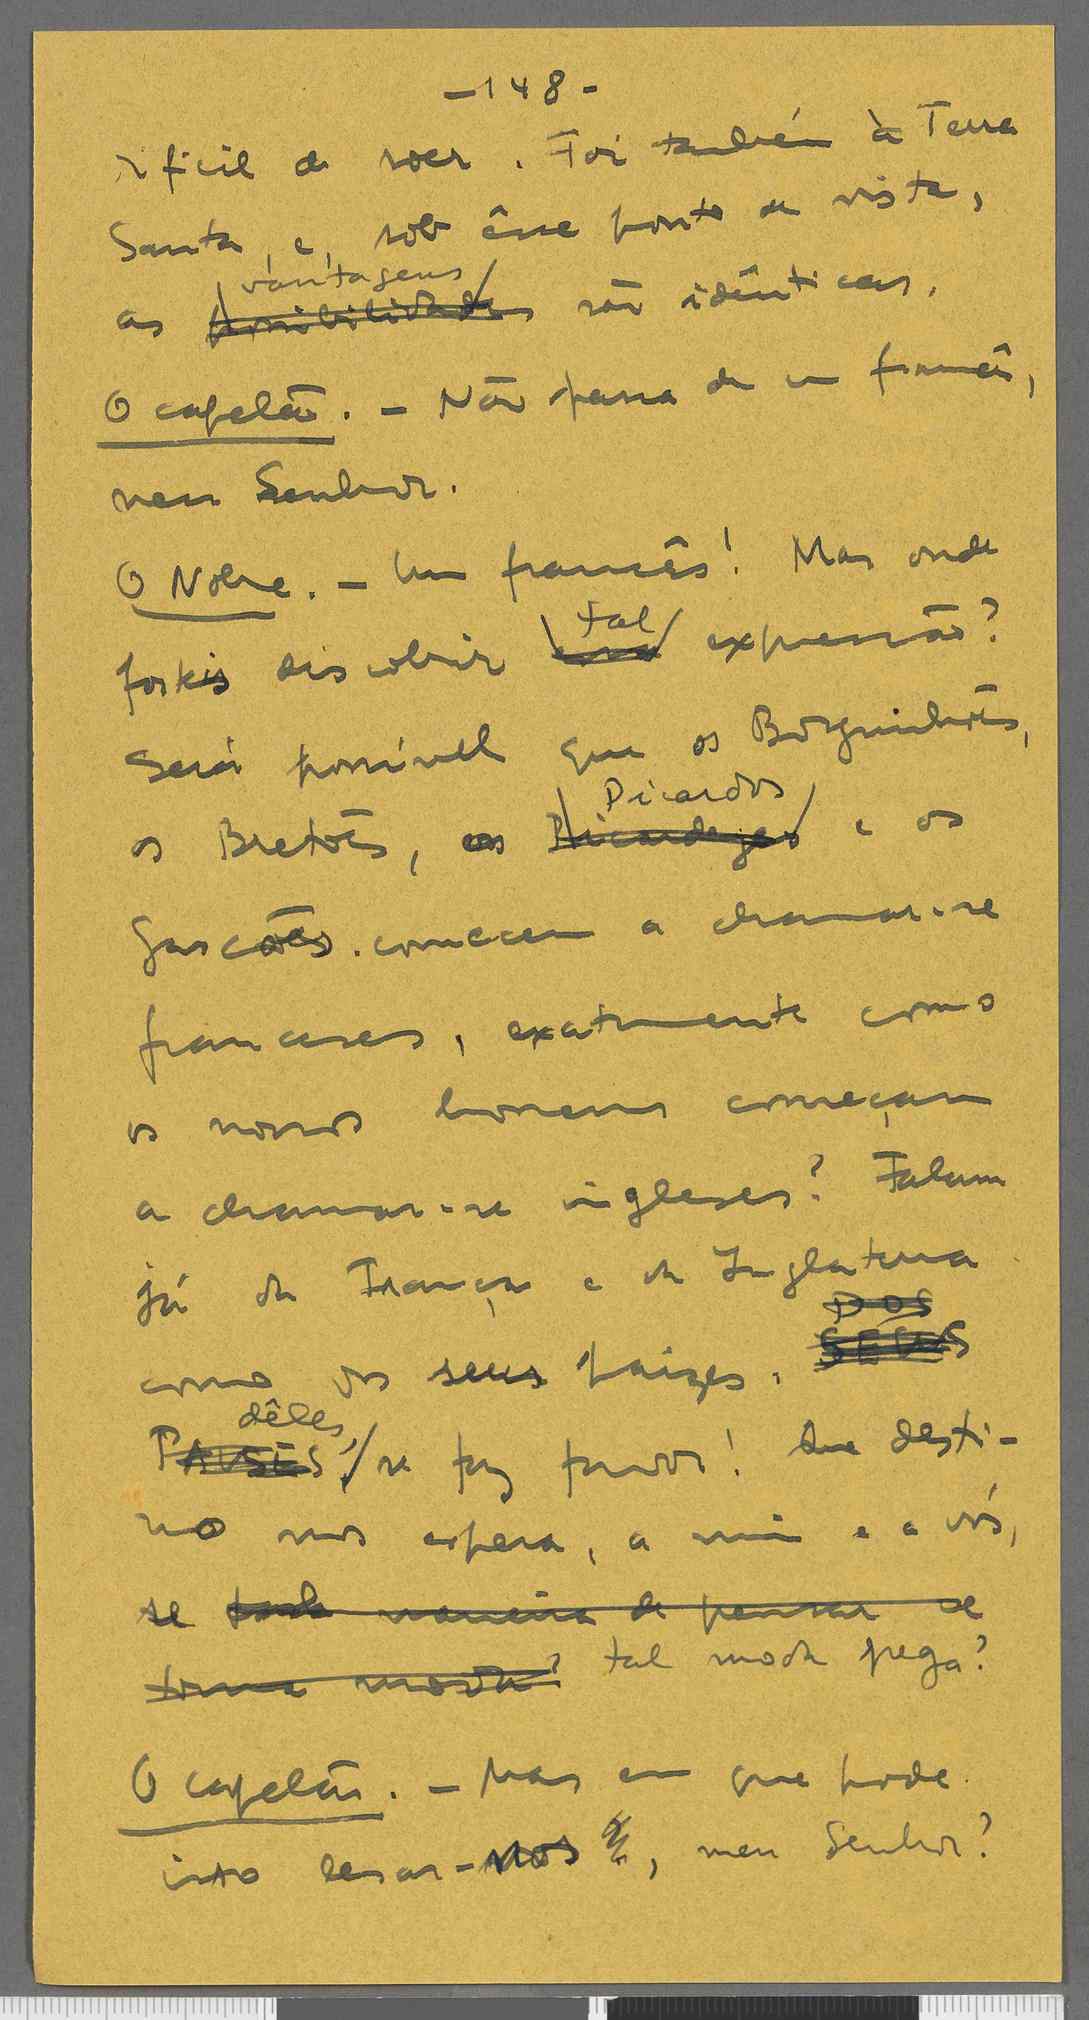 -148-
ifícil de roer. Foi também à Terra
Santa, e, sob êsse ponto de vista,
vantagens
as possibilidades são idênticas.
O capelão. - Não passa de um francês,
meu Senhor.
O Nobre. - Um francês! Mas onde
tal
fostes descobrir essa expressão?
Será possível que os Borguinhões,
Picardos
os Bretões, os e os
Gascões comecem a chamar-se
franceses, exatamente como
os nossos homens começam
a chamar-se ingleses? Falam
já da França e da Inglaterra
DOS
como dos seus paizes. SEUS
dêles,
PAISES, se faz favor! Que desti-
no nos espera, a mim e a vós,
se toda maneira de pensar se
torna moda? tal moda pega?
O capelão. - Mas em que pode
isto lesar-nos, meu Senhor?